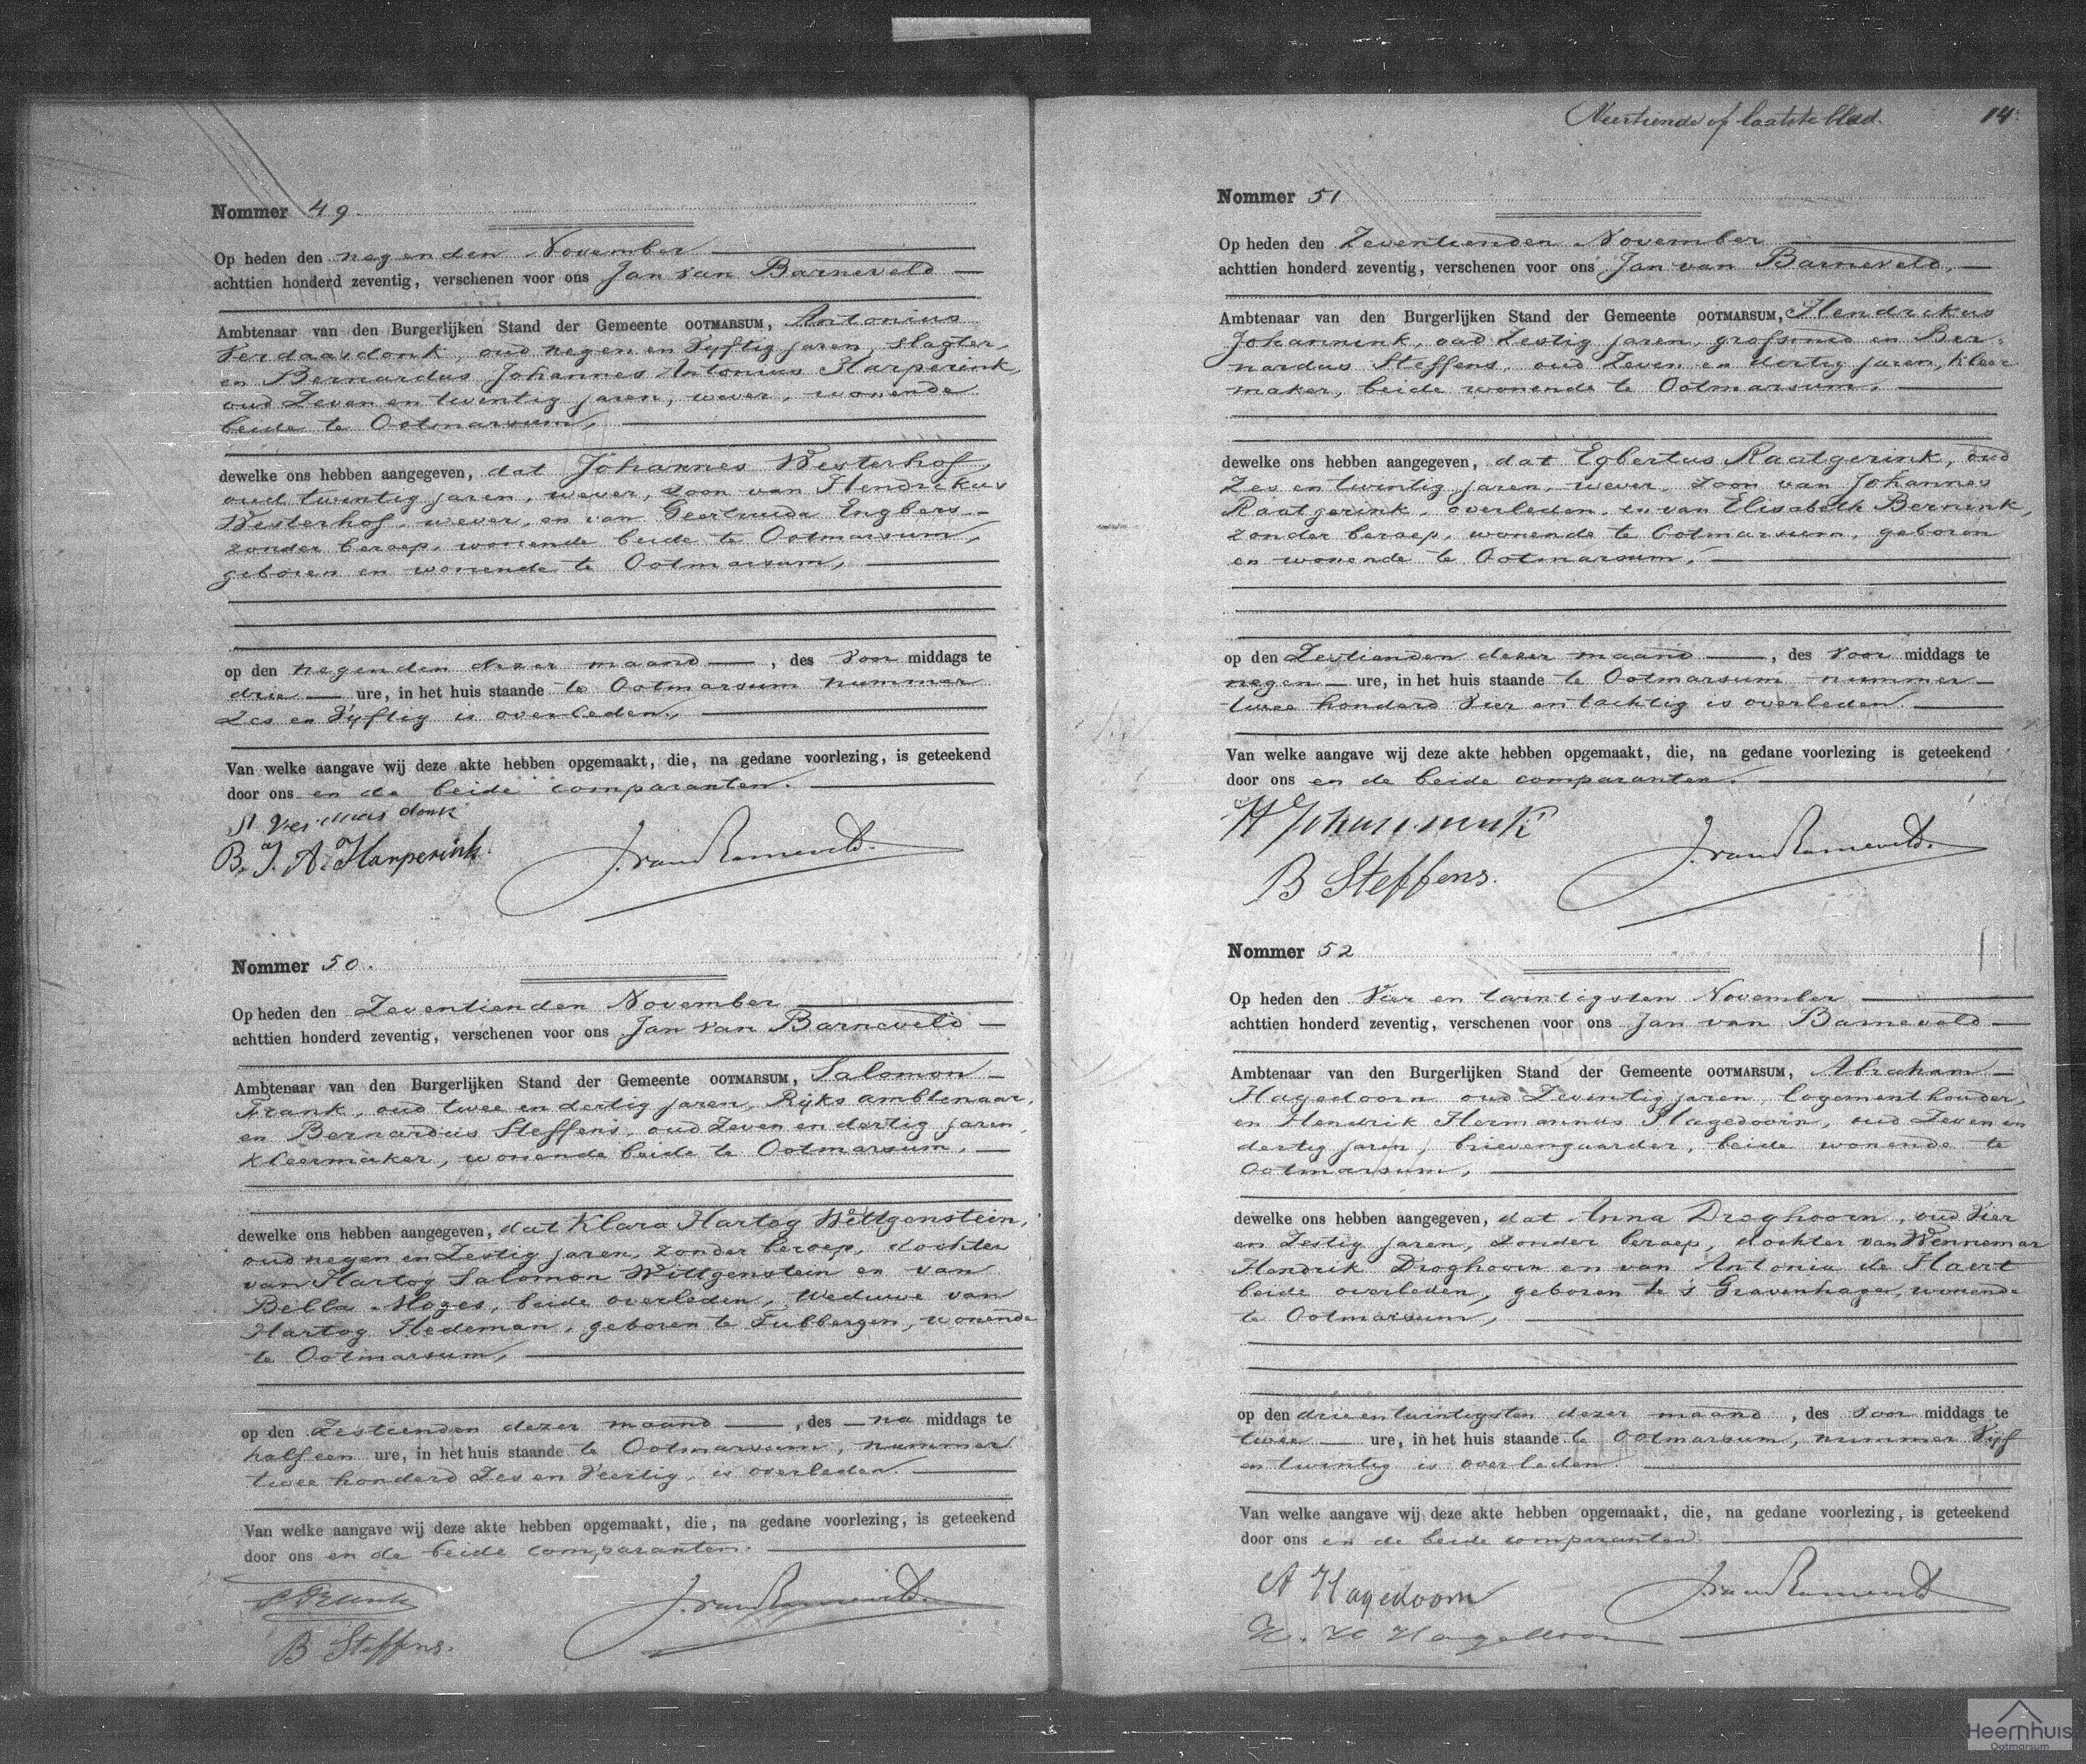 Nommer 49.
Op heden den negenden November
achttien honderd zeventig, verschenen voor ons Jan van Barneveld
Ambtenaar van den Burgerlijken Stand der Gemeente OOTMARSUM, Antonius
Verdaasdonk, oud negen en vyftig jaren, slagter,
en Bernardus Johannes Antonius Harperink,
oud zeven en twintig jaren, wever, wonende
beide te Ootmarsum,
dewelke ons hebben aangegeven, dat Johannes Westerhof,
oud twintig jaren, wever, zoon van Hendrikus
Westerhof, wever, en van Geertruida Engbers
zonder beroep, wonende beide te Ootmarsum,
geboren en wonende te Ootmarsum,
op den negenden dezer maand, des voor middags te
drie ure, in het huis staande te Ootmarsum nummer
zes en vyftig is overleden.
Van welke aangave wij deze akte hebben opgemaakt, die, na gedane voorlezing, is geteekend
door ons en de beide comparanten.
A Verdaasdonk
B. J. A. Harperink.
J. van Barneveld.
Nommer 50.
Op heden den zeventienden November
achttien honderd zeventig, verschenen voor ons Jan van Barneveld
Ambtenaar van den Burgerlijken Stand der Gemeente OOTMARSUM, Salomon
Frank, oud twee en dertig jaren, Rijks ambtenaar,
en Bernardus Steffens, oud zeven en dertig jaren,
kleermaker, wonende beide te Ootmarsum,
dewelke ons hebben aangegeven, dat Klara Hartog Wittgenstein,
oud negen en zestig jaren, zonder beroep, dochter
van Hartog Salomon Wittgenstein en van
Bella Mozes, beide overleden, Weduwe van
Hartog Hedeman, geboren te Tubbergen, wonende
te Ootmarsum,
op den zestienden dezer maand, des na middags te
half een ure, in het huis staande te Ootmarsum, nummer
twee honderd zes en veertig, is overleden.
Van welke aangave wij deze akte hebben opgemaakt, die, na gedane voorlezing, is geteekend
door ons en de beide comparanten.
S Frank
B Steffens.
J. van Barneveld.
Veertiende of laatste blad. 14.
Nommer 51
Op heden den zeventienden November
achttien honderd zeventig, verschenen voor ons Jan van Barneveld,
Ambtenaar van den Burgerlijken Stand der Gemeente OOTMARSUM, Hendrikus
Johannink, oud zestig jaren, grofsmid en Ber-
nardus Steffens, oud zeven en dertig jaren, kleer
maker, beide wonende te Ootmarsum,
dewelke ons hebben aangegeven, dat Egbertus Raatgerink, oud
zes en twintig jaren, wever, zoon van Johannes
Raatgerink, overleden, en van Elisabeth Bernink,
zonder beroep, wonende te Ootmarsum, geboren
en wonende te Ootmarsum,
op den zestienden dezer maand, des voor middags te
negen ure, in het huis staande te Ootmarsum nummer
twee honderd vier en tachtig is overleden.
Van welke aangave wij deze akte hebben opgemaakt, die, na gedane voorlezing is geteekend
door ons en de beide comparanten.
H Johannink
B Steffens.
J. van Barneveld.
Nommer 52
Op heden den vier en twintigsten November
achttien honderd zeventig, verschenen voor ons Jan van Barneveld
Ambtenaar van den Burgerlijken Stand der Gemeente OOTMARSUM, Abraham
Hagedoorn oud zeventig jaren, logementhouder,
en Hendrik Hermannus Hagedoorn, oud zeven en
dertig jaren, brievengaarder, beide wonende te
Ootmarsum,
dewelke ons hebben aangegeven, dat Anna Droghoorn, oud vier
en zestig jaren, zonder beroep, dochter van Wennemar
Hendrik Droghoorn en van Antonia de Haert
beide overleden, geboren te 's Gravenhage, wonende
te Ootmarsum,
op den drieentwintigsten dezer maand, des voor middags te
twee ure, in het huis staande te Ootmarsum, nummer vijf
en twintig is overleden.
Van welke aangave wij deze akte hebben opgemaakt, die, na gedane voorlezing, is geteekend
door ons en de beide comparanten.
A Hagedoorn
H. H Hagedoorn
J. van Barneveld
Heemhuis
Ootmarsum